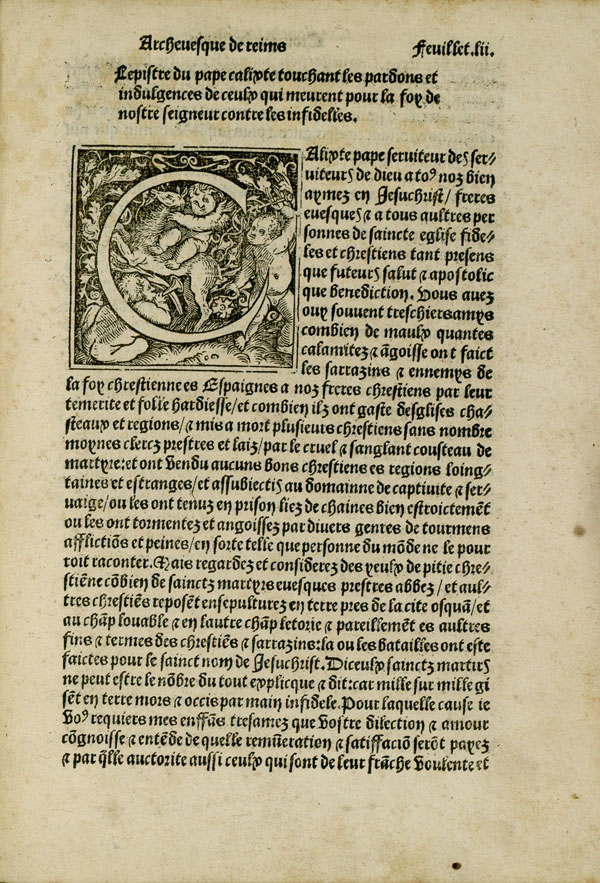 Archevesque de reims Feuillet.lii.
Lepistre du pape calixte touchant les pardons et
indulgences de ceulx qui meurent pour la foy de
nostre seigneur contre les infidelles.
CAlixte pape serviteur des ser⸗
viteurs de dieu a toꝰ noz bien
aymez en Jesuchrist/ freres
evesques ⁊ a tous aultres per
sonnes de saincte eglise fide⸗
les et chrestiens tant presens
que futeurs salut ⁊ apostolic
que benediction. Vous avez
ouy souvent treschiersamys
combien de maulx quantes
calamitez ⁊ āgoisse ont faict
les sarrazins ⁊ ennemys de
la foy chrestienne es Espaignes a noz freres chrestiens par leur
temerite et folie hardiesse/et combien ilz ont gaste desglises cha⸗
steaux et regions/⁊ mis a mort plusieurs chrestiens sans nombre
moynes clercz prestres et laiz/par le cruel ⁊ sanglant cousteau de
martyre:et ont vendu aucuns bons chrestiens es regions loing⸗
taines et estranges/et assubiectis au domainne de captivite ⁊ ser⸗
vaige/ou les ont tenuz en prison liez de chaines bien estroictemēt
ou les ont tormentez et angoissez par divers genres de tourmens
afflictiōs et peines/en sorte telle que personne du mōde ne le pour
roit raconter. Mais regardez et considerez des yeulx de pitie chre⸗
stiēne cōbien de sainctz martyrs evesques prestres abbez/et aul⸗
tres chrestiēs reposēt ensepulturez en terre pres de la cite osquā/et
au chāp louable ⁊ en lautre chāp letorie ⁊ pareillemēt es aultres
fins ⁊ termes des chrestiēs ⁊ sarrazins:la ou les batailles ont este
faictes pour le sainct nom de Jesuchrist. Diceulx sainctz martirs
ne peut estre le nōbre du tout explicque ⁊ dit:car mille sur mille gi
sēt en terre mors ⁊ occis par main infidele. Pour laquelle cause ie
voꝰ requiers mes enffās tresamez que vostre dilection ⁊ amour
cōgnoisse ⁊ entēde de quelle remūeration ⁊ satiffaciō serōt payez
⁊ par q̄lle auctorite aussi ceulx qui sont de leur frāche voulente et